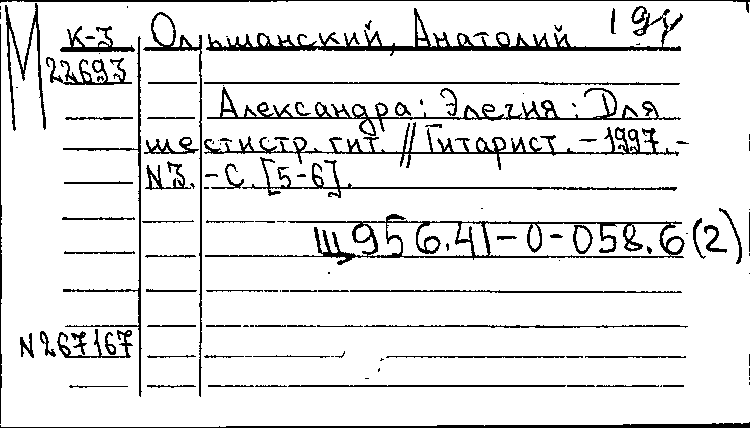 М К-3 Ольшанский, Анатолий
22693
Александра: Элегия: Для
шестистр. гит. // Гитарист. - 1997. -
N 3. - С. [5-6].
Щ 956.41-0-058.6(2)
N 267167